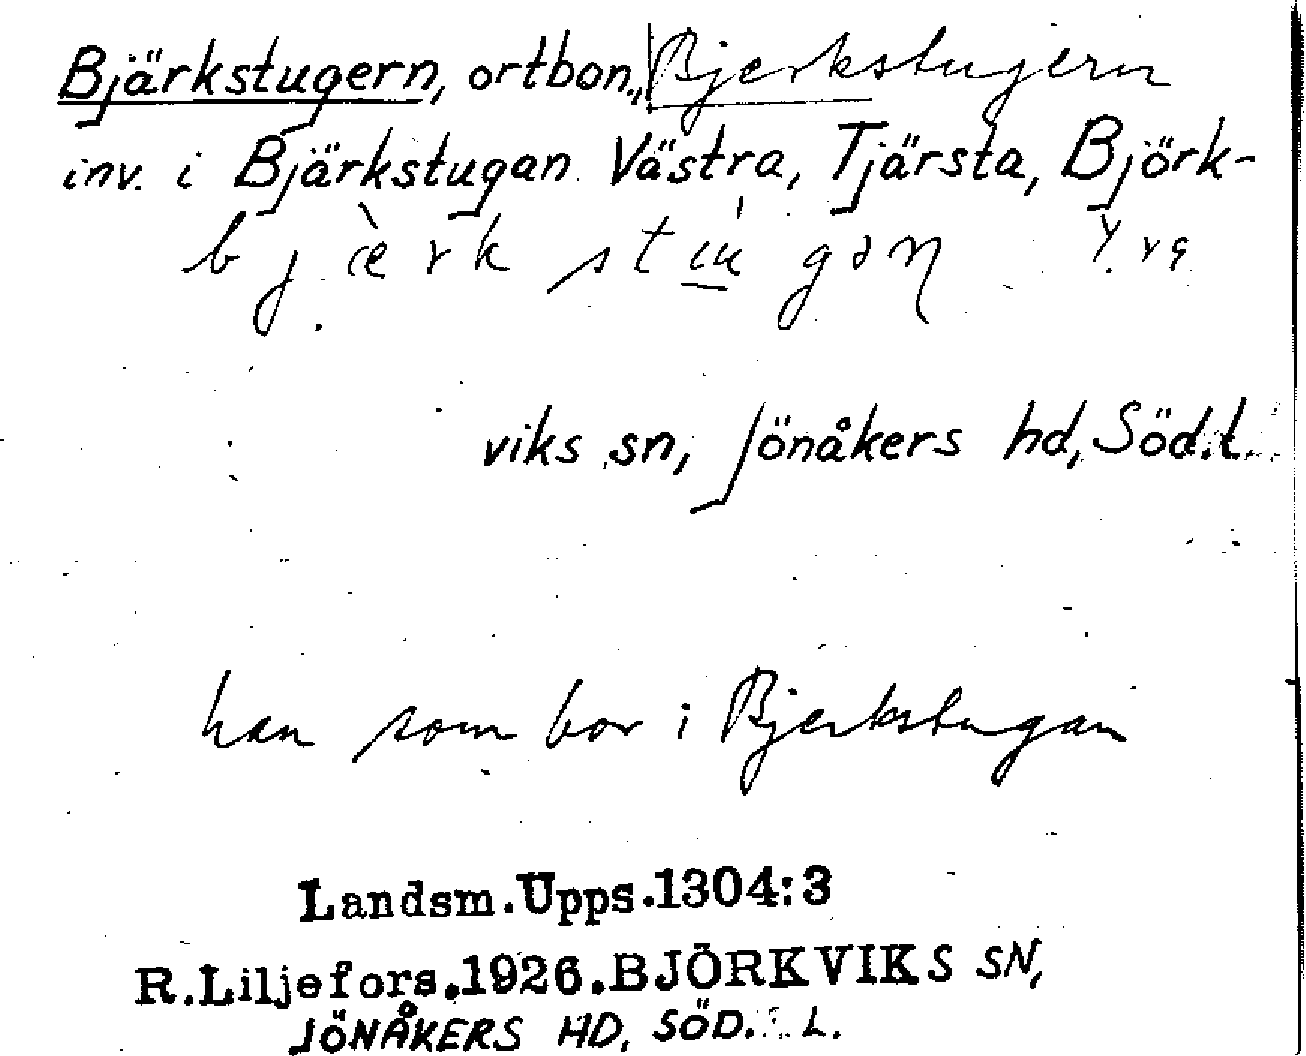 Bjärkstugern, ortbon., Bjerkstugern
inv. i Bjärkstugan Västra, Tjärsta, Björk-
bjæ̀rkstúgəɳ
viks sn, Jönåkers hd, Söd.l.
han som bor i Bjerkstugan
Landsm.Upps.1304:3
R.Liljefors.1926.BJÖRKVIKS SN,
JÖNÅKERS HD, SÖD. L.